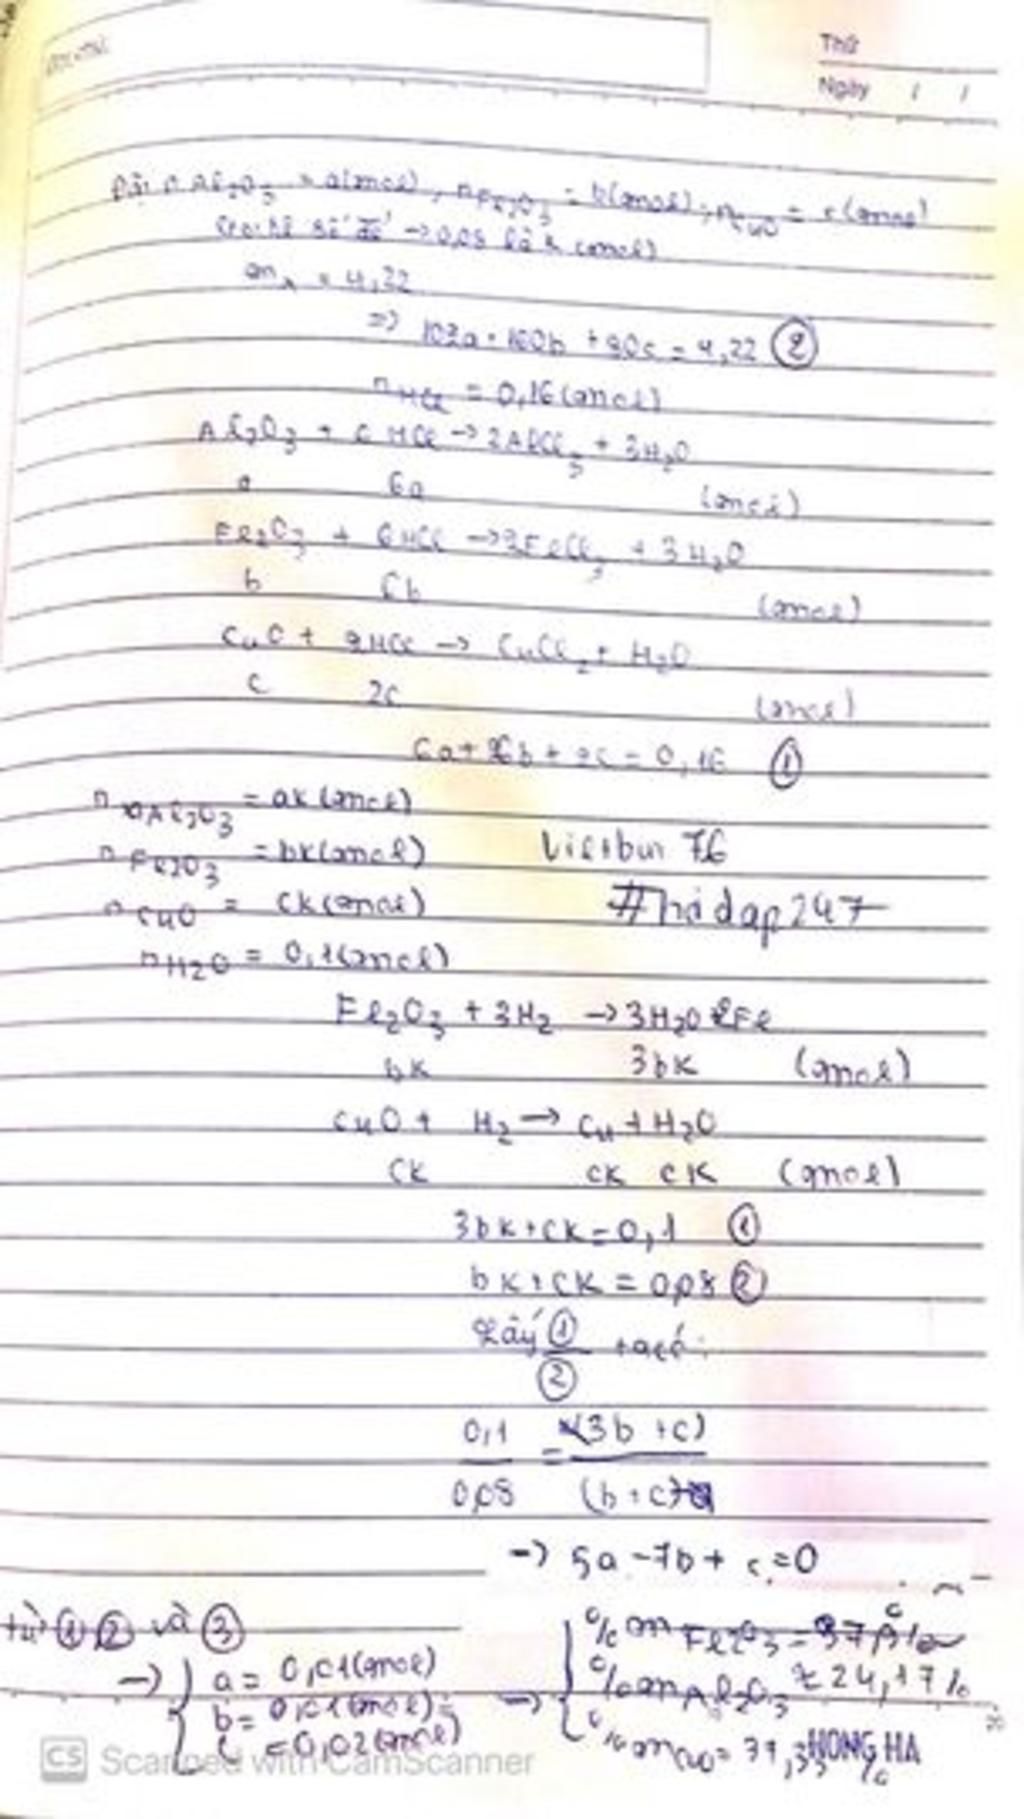 Thứ
Ngày / /
Đặt n Al₂O₃ = a(mol), nFe₂O₃ = b(mol); nCuO = c(mol)
→ 0,08 là k (mol)
= 4,22
=> 102a + 160b + 80c = 4,22 ②
nHCl = 0,16(mol)
Al₂O₃ + 6HCl → 2AlCl₃ + 3H₂O
a 6a (mol)
Fe₂O₃ + 6HCl → 2FeCl₃ + 3H₂O
b 6b (mol)
CuO + 2HCl → CuCl₂ + H₂O
c 2c (mol)
6a + 6b + 2c = 0,16 ①
nAl₂O₃ = ak(mol)
nFe₂O₃ = bk(mol)
nCuO = ck(mol) #hoidap247
nH2O = 0,1(mol)
Fe₂O₃ + 3H₂ → 3H₂O 2Fe
bk 3bk (mol)
CuO + H₂ → Cu + H₂O
ck ck ck (mol)
3bk + ck = 0,1 ①
bk + ck = 0,08 ②
Lấy ①/② ta có:
0,1/0,08 = (3b + c)/(b + c)
→ 5a - 7b + c = 0
từ ① ② và ③
→ { a = 0,01(mol)
b = 0,01(mol)
c = 0,02(mol)
→ { % mFe2O3 = 37,9%
% mAl₂O₃ ≈ 24,17%
% mCuO = 37,33%
HONG HA
CS Scanned with CamScanner